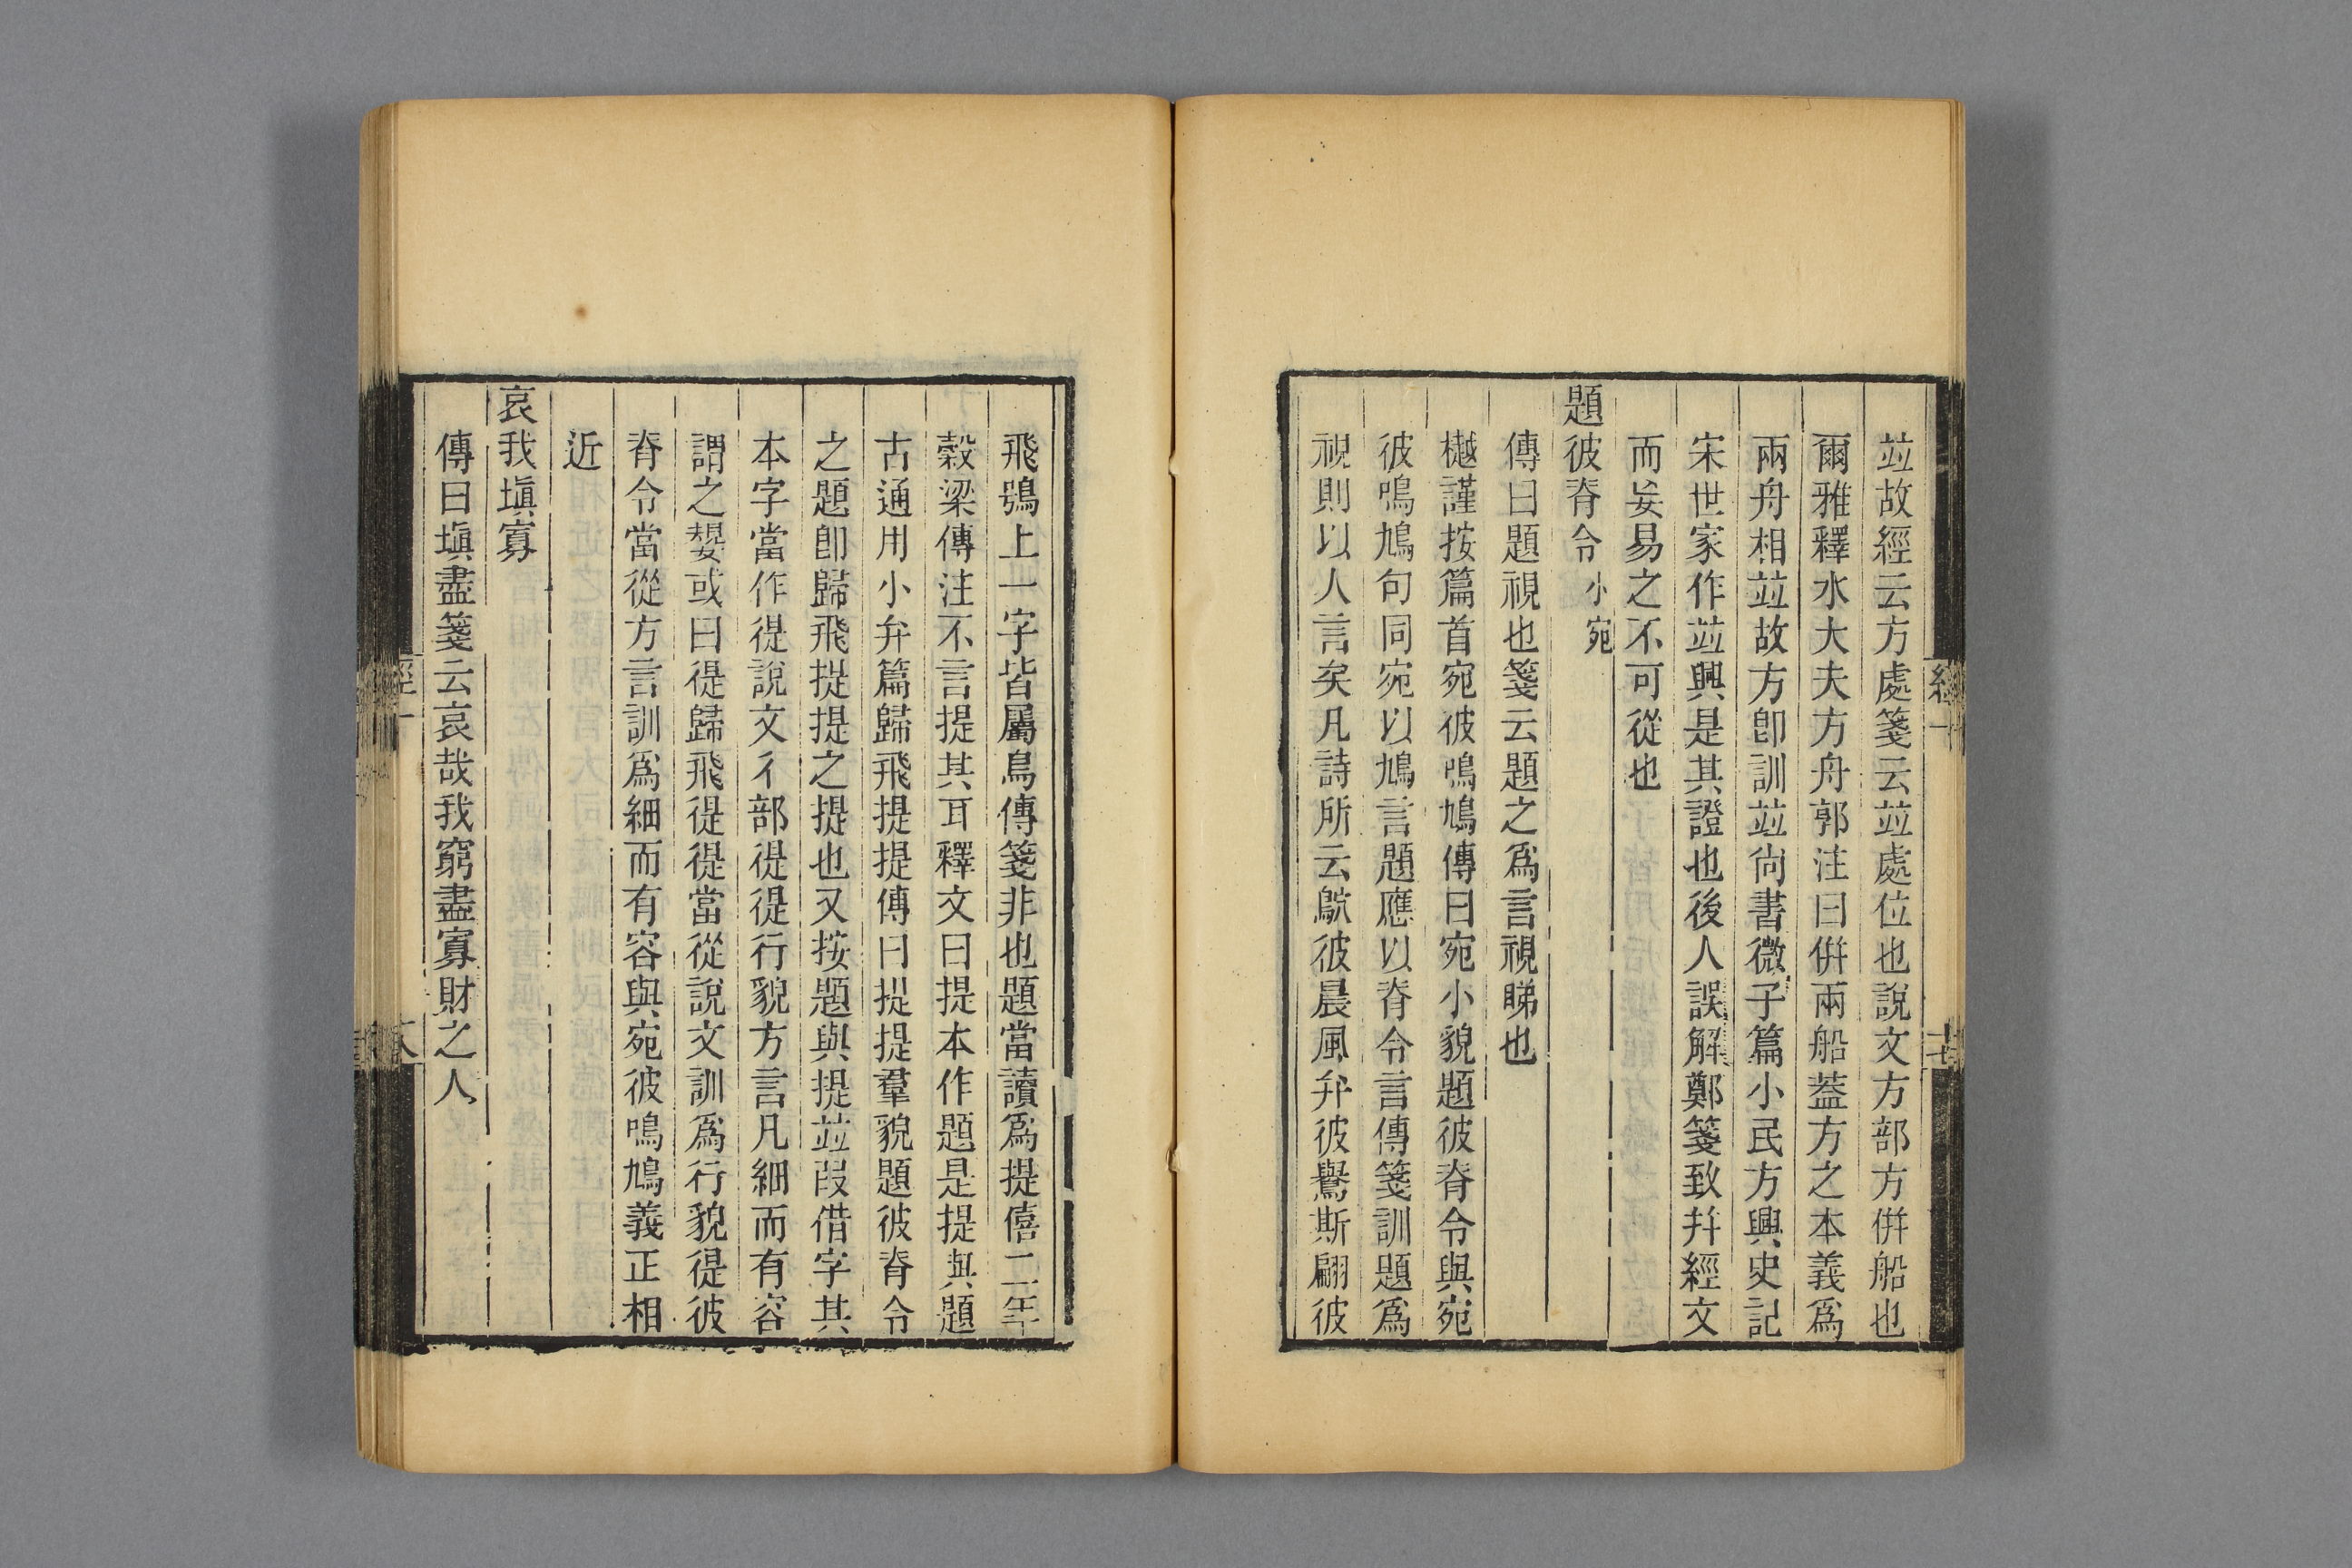 並故經云方處箋云並處位也說文方部方併船也
爾雅釋水大夫方舟郭注曰併兩船葢方之本義爲
兩舟相並故方卽訓並尙書微子篇小民方興史記
宋世家作並興是其證也後人誤解鄭箋致幷經文
而妄易之不可從也
題彼脊令小宛
傳曰題視也箋云題之爲言視睇也
樾謹按篇首宛彼鳴鳩傳曰宛小貌題彼脊令與宛
彼鳴鳩句同宛以鳩言題應以脊令言傳箋訓題爲
視則以人言矣凡詩所云鴥彼晨風弁彼鸒斯翩彼
飛鴞上一字皆屬鳥傳箋非也題當讀爲提僖二年
穀梁傳注不言提其耳釋文曰提本作題是提與題
古通用小弁篇歸飛提提傳曰提提羣貌題彼脊令
之題卽歸飛提提之提也又按題與提並叚借字其
本字當作徥說文彳部徥徥行貌方言凡細而有容
謂之嫢或曰徥歸飛徥徥當從說文訓爲行貌徥彼
脊令當從方言訓爲細而有容與宛彼鳴鳩義正相
近
哀我塡寡
傳曰塡盡箋云哀哉我窮盡寡財之人
經一